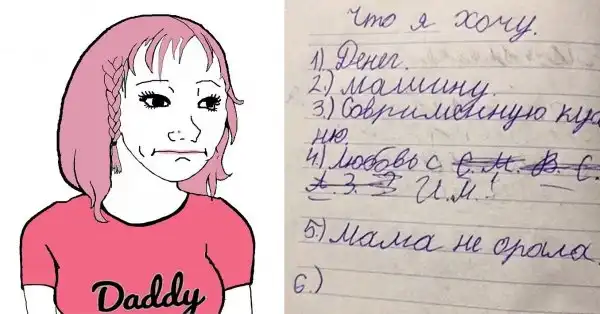 Daddy
Что я хочу.
1) Денег.
2.) машину.
3.) Соврименную кух
ню.
4.) Любовь с С. М. В. С.
А. З. И.М.!
5.) Мама не орала.
6.)